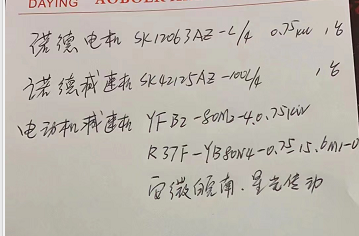 DAYING
诺德电机 SK12063AZ-L/4 0.75kw 1台
诺德减速机 SK42125AZ-100L/4 1台
电动机减速机 YFB2-80M2-4,0.75kw
R37F-YB80N4-0.75-15.6-M1-0
皖南.星光传动